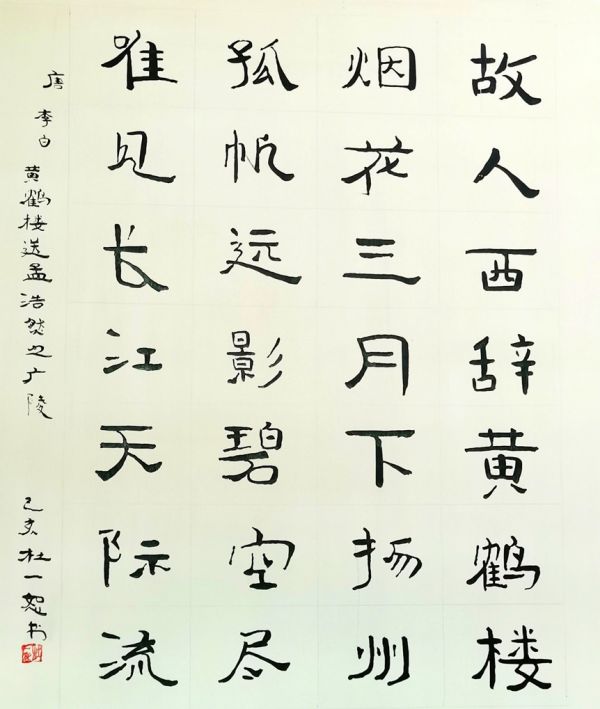 故人西辞黄鹤楼
烟花三月下扬州
孤帆远影碧空尽
唯见长江天际流
唐 李白 黄鹤楼送孟浩然之广陵
己亥 杜一恕书